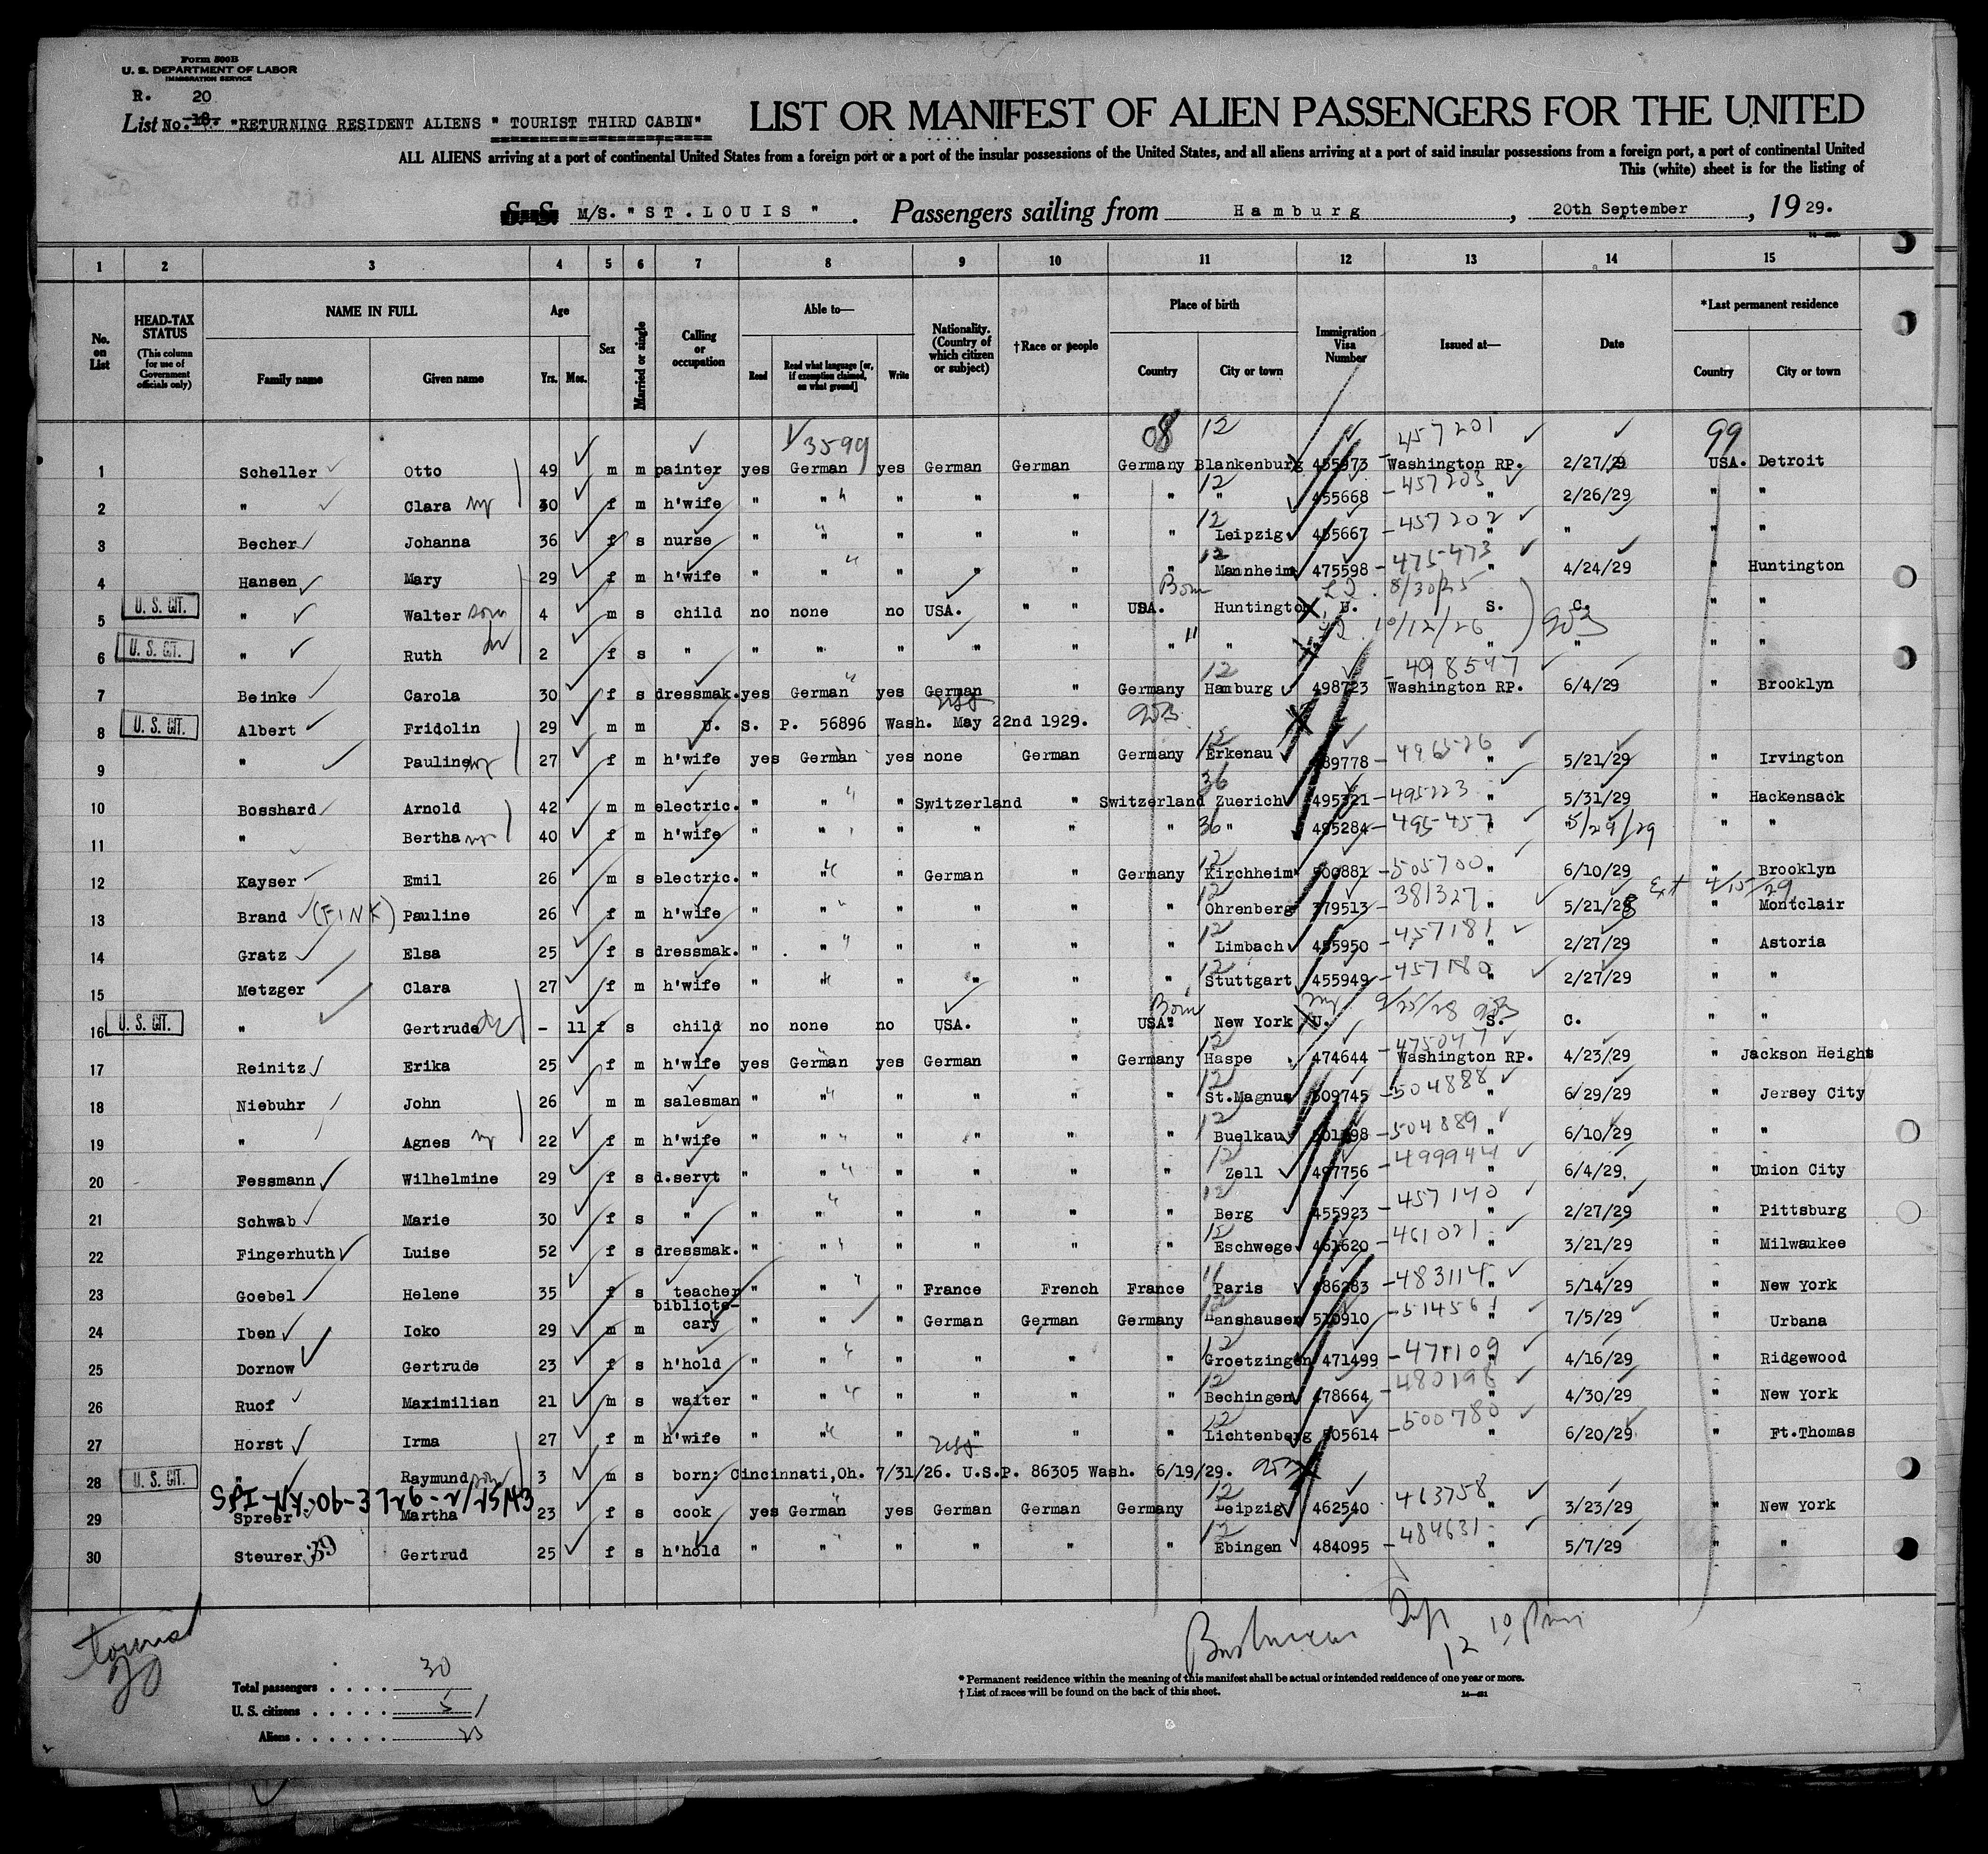 Form 500B
U. S. DEPARTMENT OF LABOR
IMMIGRATION SERVICE
R. 20
List No. 18. "RETURNING RESIDENT ALIENS " TOURIST THIRD CABIN"
LIST OR MANIFEST OF ALIEN PASSENGERS FOR THE UNITED
ALL ALIENS arriving at a port of continental United States from a foreign port or a port of the insular possessions of the United States, and all aliens arriving at a port of said insular possessions from a foreign port, a port of continental United
This (white) sheet is for the listing of
S.S. M/S. "ST.LOUIS" . Passengers sailing from Hamburg , 20th September , 1929.
1 2 3 4 5 6 7 8 9 10 11 12 13 14 15
No. on List
HEAD-TAX STATUS (This column for use of Government officials only)
NAME IN FULL
Family name Given name
Age
Yrs. Mos.
Sex
Married or single
Calling or occupation
Able to—
Read Read what language [or, if exemption claimed, on what ground] Write
Nationality. (Country of which citizen or subject)
†Race or people
Place of birth
Country City or town
Immigration Visa Number
Issued at—
Date
*Last permanent residence
Country City or town
√3599 08 12 457201 99
1 Scheller Otto 49 m m painter yes German yes German German Germany Blankenburg 455973 Washington RP. 2/27/29 USA. Detroit
12 -457203
2 " Clara 30 f m h'wife " " " " " " " 455668 " 2/26/29 " "
12 -457202
3 Becher Johanna 36 f s nurse " " " " " " Leipzig 455667 " " " "
12 -475473
4 Hansen Mary 29 f m h'wife " " " " " " Mannheim 475598 " 4/24/29 " Huntington
Born 8/30/25
5 U. S. CIT. " Walter son 4 m s child no none no USA. " " USA. Huntington U. S. C. " "
10/12/26
6 U. S. CIT. " Ruth 2 f s " " " " " " " " " " " "
12 -498547
7 Beinke Carola 30 f s dressmak. yes German yes German " Germany Hamburg 498723 Washington RP. 6/4/29 " Brooklyn
8 U. S. CIT. Albert Fridolin 29 m m U. S. P. 56896 Wash. May 22nd 1929.
12 -496526
9 " Pauline 27 f m h'wife yes German yes none German Germany Erkenau 489778 " 5/21/29 " Irvington
36 -495223
10 Bosshard Arnold 42 m m electric. " " " Switzerland " Switzerland Zuerich 495321 " 5/31/29 " Hackensack
36 -495457
11 " Bertha 40 f m h'wife " " " " " " " 495284 " 5/29/29 " "
12 -505700
12 Kayser Emil 26 m s electric. " " " German " Germany Kirchheim 500881 " 6/10/29 " Brooklyn
12 -381327 Ext 4/15/29
13 Brand (FINK) Pauline 26 f m h'wife " " " " " " Ohrenberg 379513 " 5/21/28 " Montclair
12 -457181
14 Gratz Elsa 25 f s dressmak. " " " " " " Limbach 455950 " 2/27/29 " Astoria
12 -457180
15 Metzger Clara 27 f m h'wife " " " " " " Stuttgart 455949 " 2/27/29 " "
Born 9/25/28
16 U. S. CIT. " Gertrude - 11 f s child no none no USA. " USA. New York U. S. C. " "
12 -475047
17 Reinitz Erika 25 f m h'wife yes German yes German " Germany Haspe 474644 Washington RP. 4/23/29 " Jackson Heights
12 -504888
18 Niebuhr John 26 m m salesman " " " " " " St.Magnus 509745 " 6/29/29 " Jersey City
12 -504889
19 " Agnes 22 f m h'wife " " " " " " Buelkau 501398 " 6/10/29 " "
12 -499944
20 Fessmann Wilhelmine 29 f s d.servt " " " " " " Zell 497756 " 6/4/29. " Union City
12 -457140
21 Schwab Marie 30 f s " " " " " " " Berg 455923 " 2/27/29 " Pittsburg
12 -461021
22 Fingerhuth Luise 52 f s dressmak. " " " " " " Eschwege 461620 " 3/21/29 " Milwaukee
11 -483114
23 Goebel Helene 35 f s teacher " " " France French France Paris 486283 " 5/14/29 " New York
12 -514561
24 Iben Icko 29 m m bibliote-cary " " " German German Germany Hanshausen 510910 " 7/5/29 " Urbana
12 -471109
25 Dornow Gertrude 23 f s h'hold " " " " " " Groetzingen 471499 " 4/16/29 " Ridgewood
12 -480196
26 Ruof Maximilian 21 m s waiter " " " " " " Bechingen 478664 " 4/30/29 " New York
12 -500780
27 Horst Irma 27 f m h'wife " " " " " " Lichtenberg 505614 " 6/20/29 " Ft.Thomas
28 U. S. CIT. " Raymund son 3 m s born: Cincinnati,Oh. 7/31/26. U.S.P. 86305 Wash. 6/19/29.
12 463758
29 Spreer Martha 23 f s cook yes German yes German German Germany Leipzig 462540 " 3/23/29 " New York
12 -484631
30 Steurer 39 Gertrud 25 f s h'hold " " " " " " Ebingen 484095 " 5/7/29 " "
tourist
20
12
Total passengers . . . . 30
U. S. citizens . . . . . 5
Aliens . . . . . .
* Permanent residence within the meaning of this manifest shall be actual or intended residence of one year or more.
† List of races will be found on the back of this sheet.